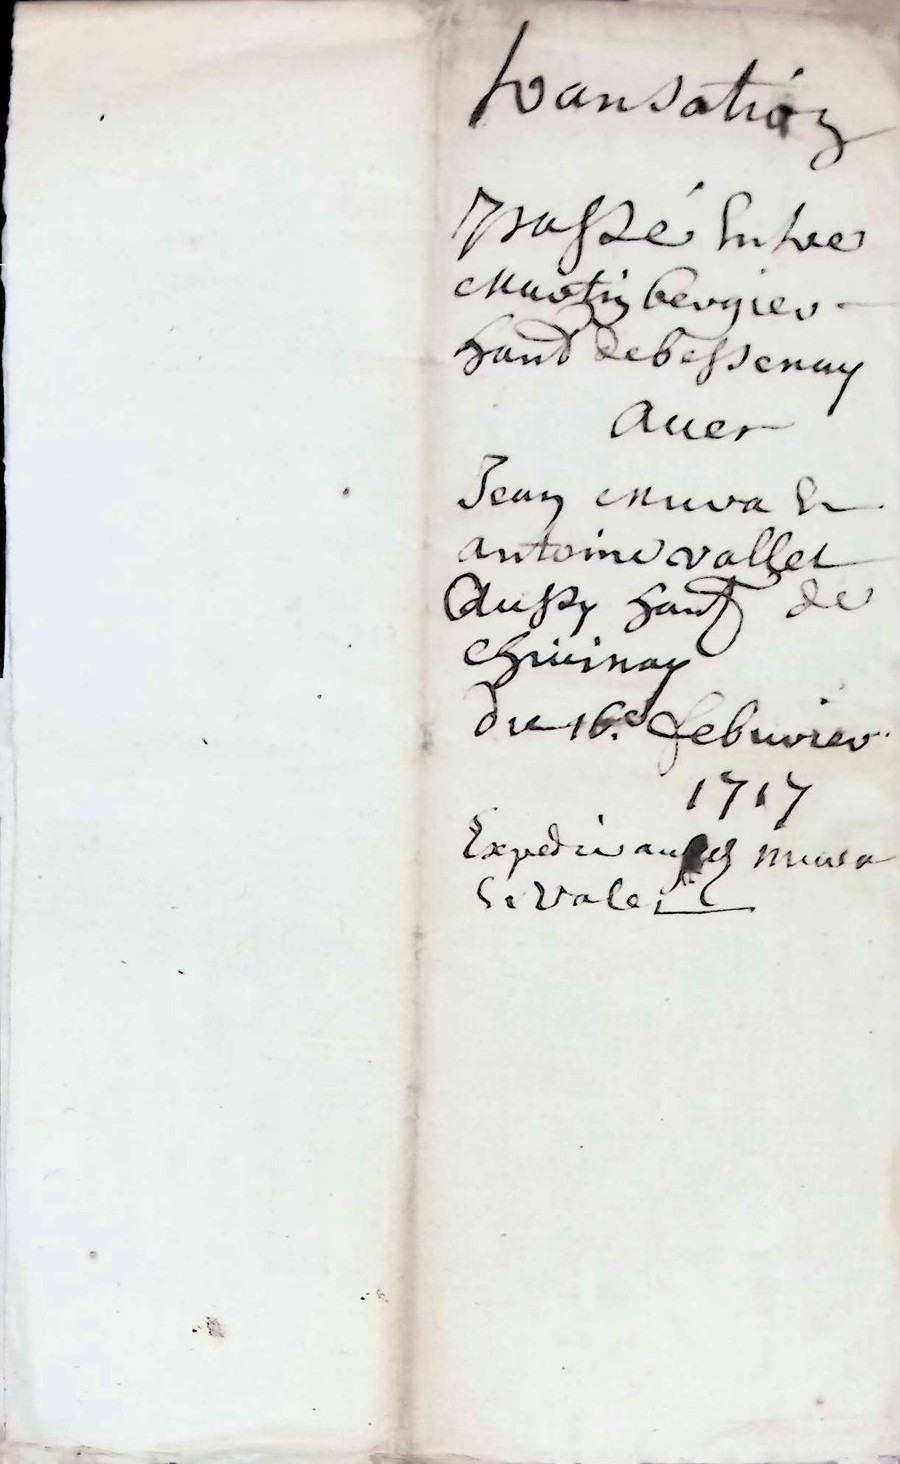 transation
passé entre
martin bergier
hant de bessenay
avec
Jean mura et
antoine vallet
aussy hant de
chivinay
du 16e febvrier
1717
Expedié aud mura
et valet